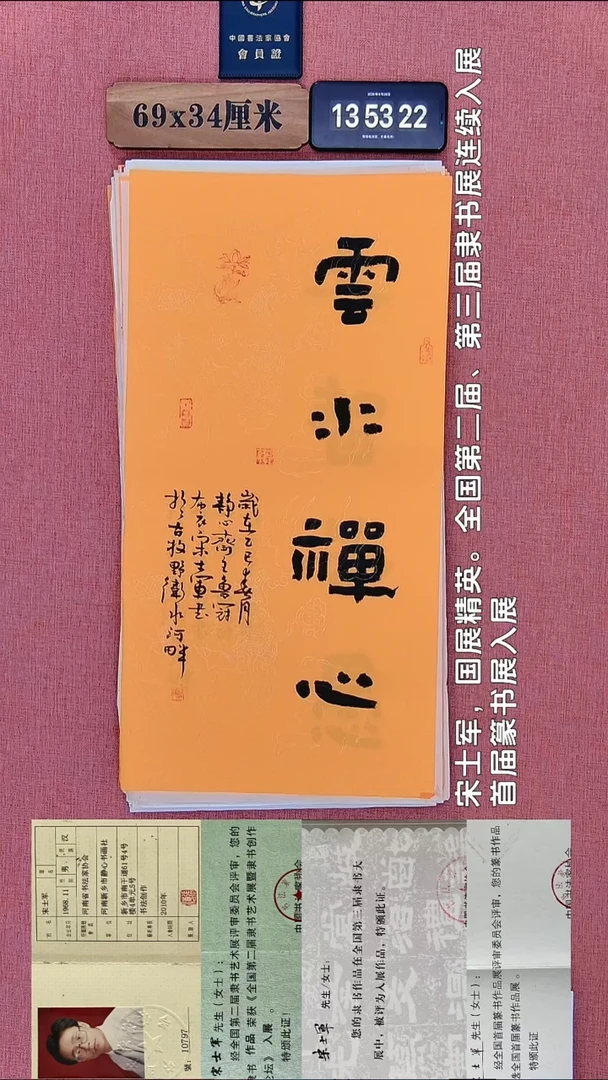 中國書法家協會
會員證
69x34厘米
13 53 22
雲水禪心
歲在乙巳年春月
布衣宋士軍書
於古牧野衛水河畔
宋士军，国展精英。全国第二届、第三届隶书展连续入展
首届篆书展入展
宋士军
1968.11
男
汉
河南省书法家协会
河南新乡市静心书画社
新乡市南干道61号4号
楼4单元5号
书法创作
2010年
號：10797
宋士军 先生（女士）：
经全国第二届隶书艺术展评审委员会评审，您的
隶书 作品 荣获《全国第二届隶书艺术展暨隶书创作
论坛》 入展 。
特颁此证！
宋士军 先生/女士：
您的隶书作品在全国第三届隶书大
展中，被评为入展作品，特颁此证。
士军 先生（女士）：
经全国首届篆书作品展评审委员会评审，您的篆书作品
选全国首届篆书作品展。
特颁此证